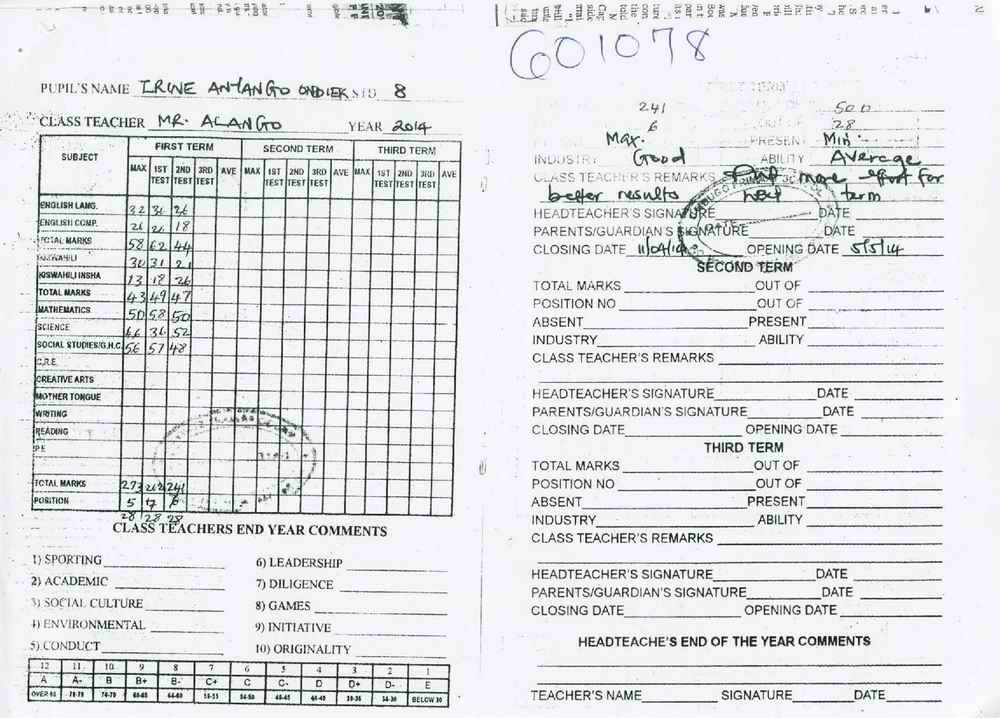 601078
PUPIL'S NAME IRINE ANYANGO ONDIEK STD 8
CLASS TEACHER MR. ALANGO YEAR 2014
SUBJECT FIRST TERM SECOND TERM THIRD TERM
MAX 1ST TEST 2ND TEST 3RD TEST AVE MAX 1ST TEST 2ND TEST 3RD TEST AVE MAX 1ST TEST 2ND TEST 3RD TEST AVE
ENGLISH LANG. 32 36 26
ENGLISH COMP. 26 26 18
TOTAL MARKS 58 62 44
KISWAHILI 30 31 21
KISWAHILI INSHA 13 18 26
TOTAL MARKS 43 49 47
MATHEMATICS 50 58 50
SCIENCE 66 36 52
SOCIAL STUDIES/G.H.C. 56 57 48
C.R.E.
CREATIVE ARTS
MOTHER TONGUE
WRITING
READING
P.E
TOTAL MARKS 273 262 241
POSITION 5 7 6
28 28 28
CLASS TEACHERS END YEAR COMMENTS
1) SPORTING
2) ACADEMIC
3) SOCIAL CULTURE
4) ENVIRONMENTAL
5) CONDUCT
6) LEADERSHIP
7) DILIGENCE
8) GAMES
9) INITIATIVE
10) ORIGINALITY
12 11 10 9 8 7 6 5 4 3 2 1
A A- B B+ B- C+ C C- D D+ D- E
BELOW 30
FIRST TERM
241 500
6 OUT OF 28
Max. PRESENT Min
INDUSTRY Good ABILITY Average
CLASS TEACHER'S REMARKS Put more effort for
better results next term
HEADTEACHER'S SIGNATURE DATE
PARENTS/GUARDIAN'S SIGNATURE DATE
CLOSING DATE 11/04/14 OPENING DATE 5/5/14
SECOND TERM
TOTAL MARKS OUT OF
POSITION NO OUT OF
ABSENT PRESENT
INDUSTRY ABILITY
CLASS TEACHER'S REMARKS
HEADTEACHER'S SIGNATURE DATE
PARENTS/GUARDIAN'S SIGNATURE DATE
CLOSING DATE OPENING DATE
THIRD TERM
TOTAL MARKS OUT OF
POSITION NO OUT OF
ABSENT PRESENT
INDUSTRY ABILITY
CLASS TEACHER'S REMARKS
HEADTEACHER'S SIGNATURE DATE
PARENTS/GUARDIAN'S SIGNATURE DATE
CLOSING DATE OPENING DATE
HEADTEACHE'S END OF THE YEAR COMMENTS
TEACHER'S NAME SIGNATURE DATE